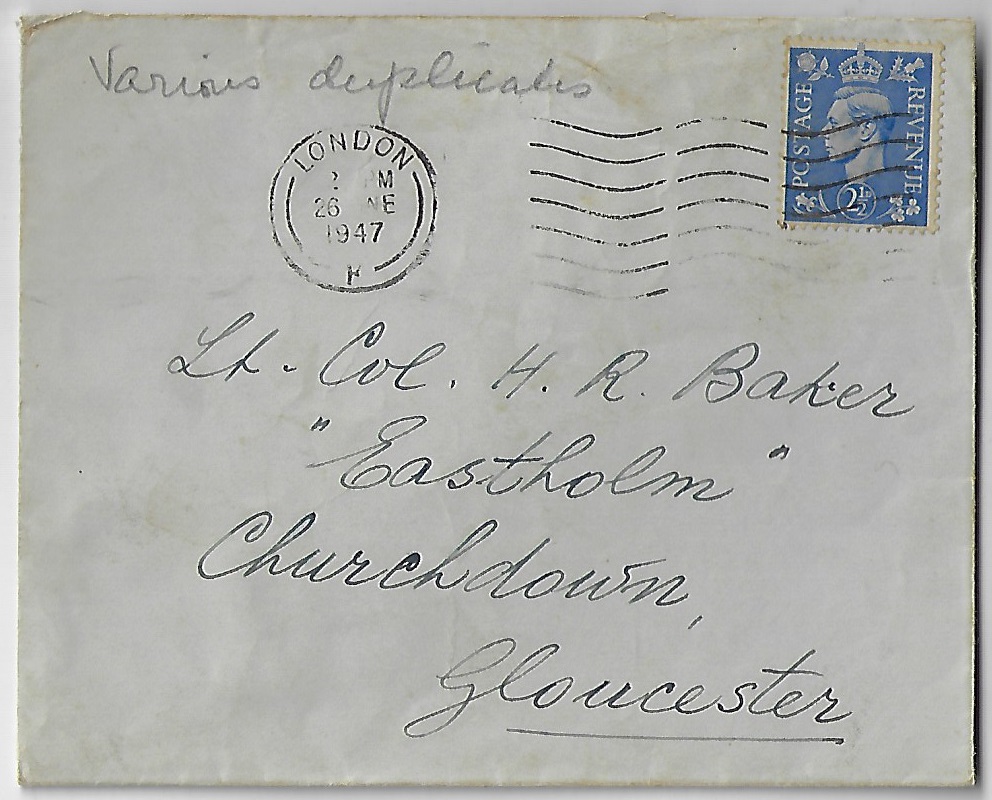 Various duplicates
POSTAGE REVENUE
2½
LONDON
2 PM
26 NE
1947
Lt. Col. H. R. Baker
"Eastholm"
Churchdown,
Gloucester